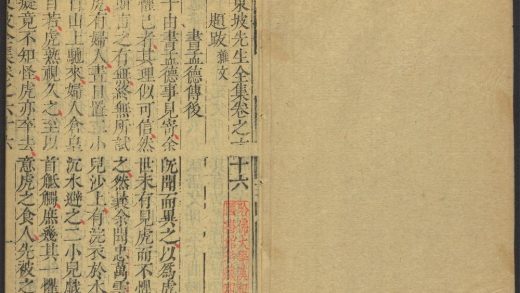 東坡先生全集卷之六十六
題跋 雜文
書孟德傳後
子由書孟德事見寄余既聞而異之以爲虎
懼己者其理似可信然世未有見虎而不懼
則斯言之有無終無所試之然曩余聞忠萬雲
虎有婦人晝日置二小兒沙上而浣衣於水
自山上馳來婦人倉皇沉水避之二小兒戲
自若虎熟視久之至以首觝觸庶幾其一懼
癡竟不知怪虎亦卒去意虎之食人先被之